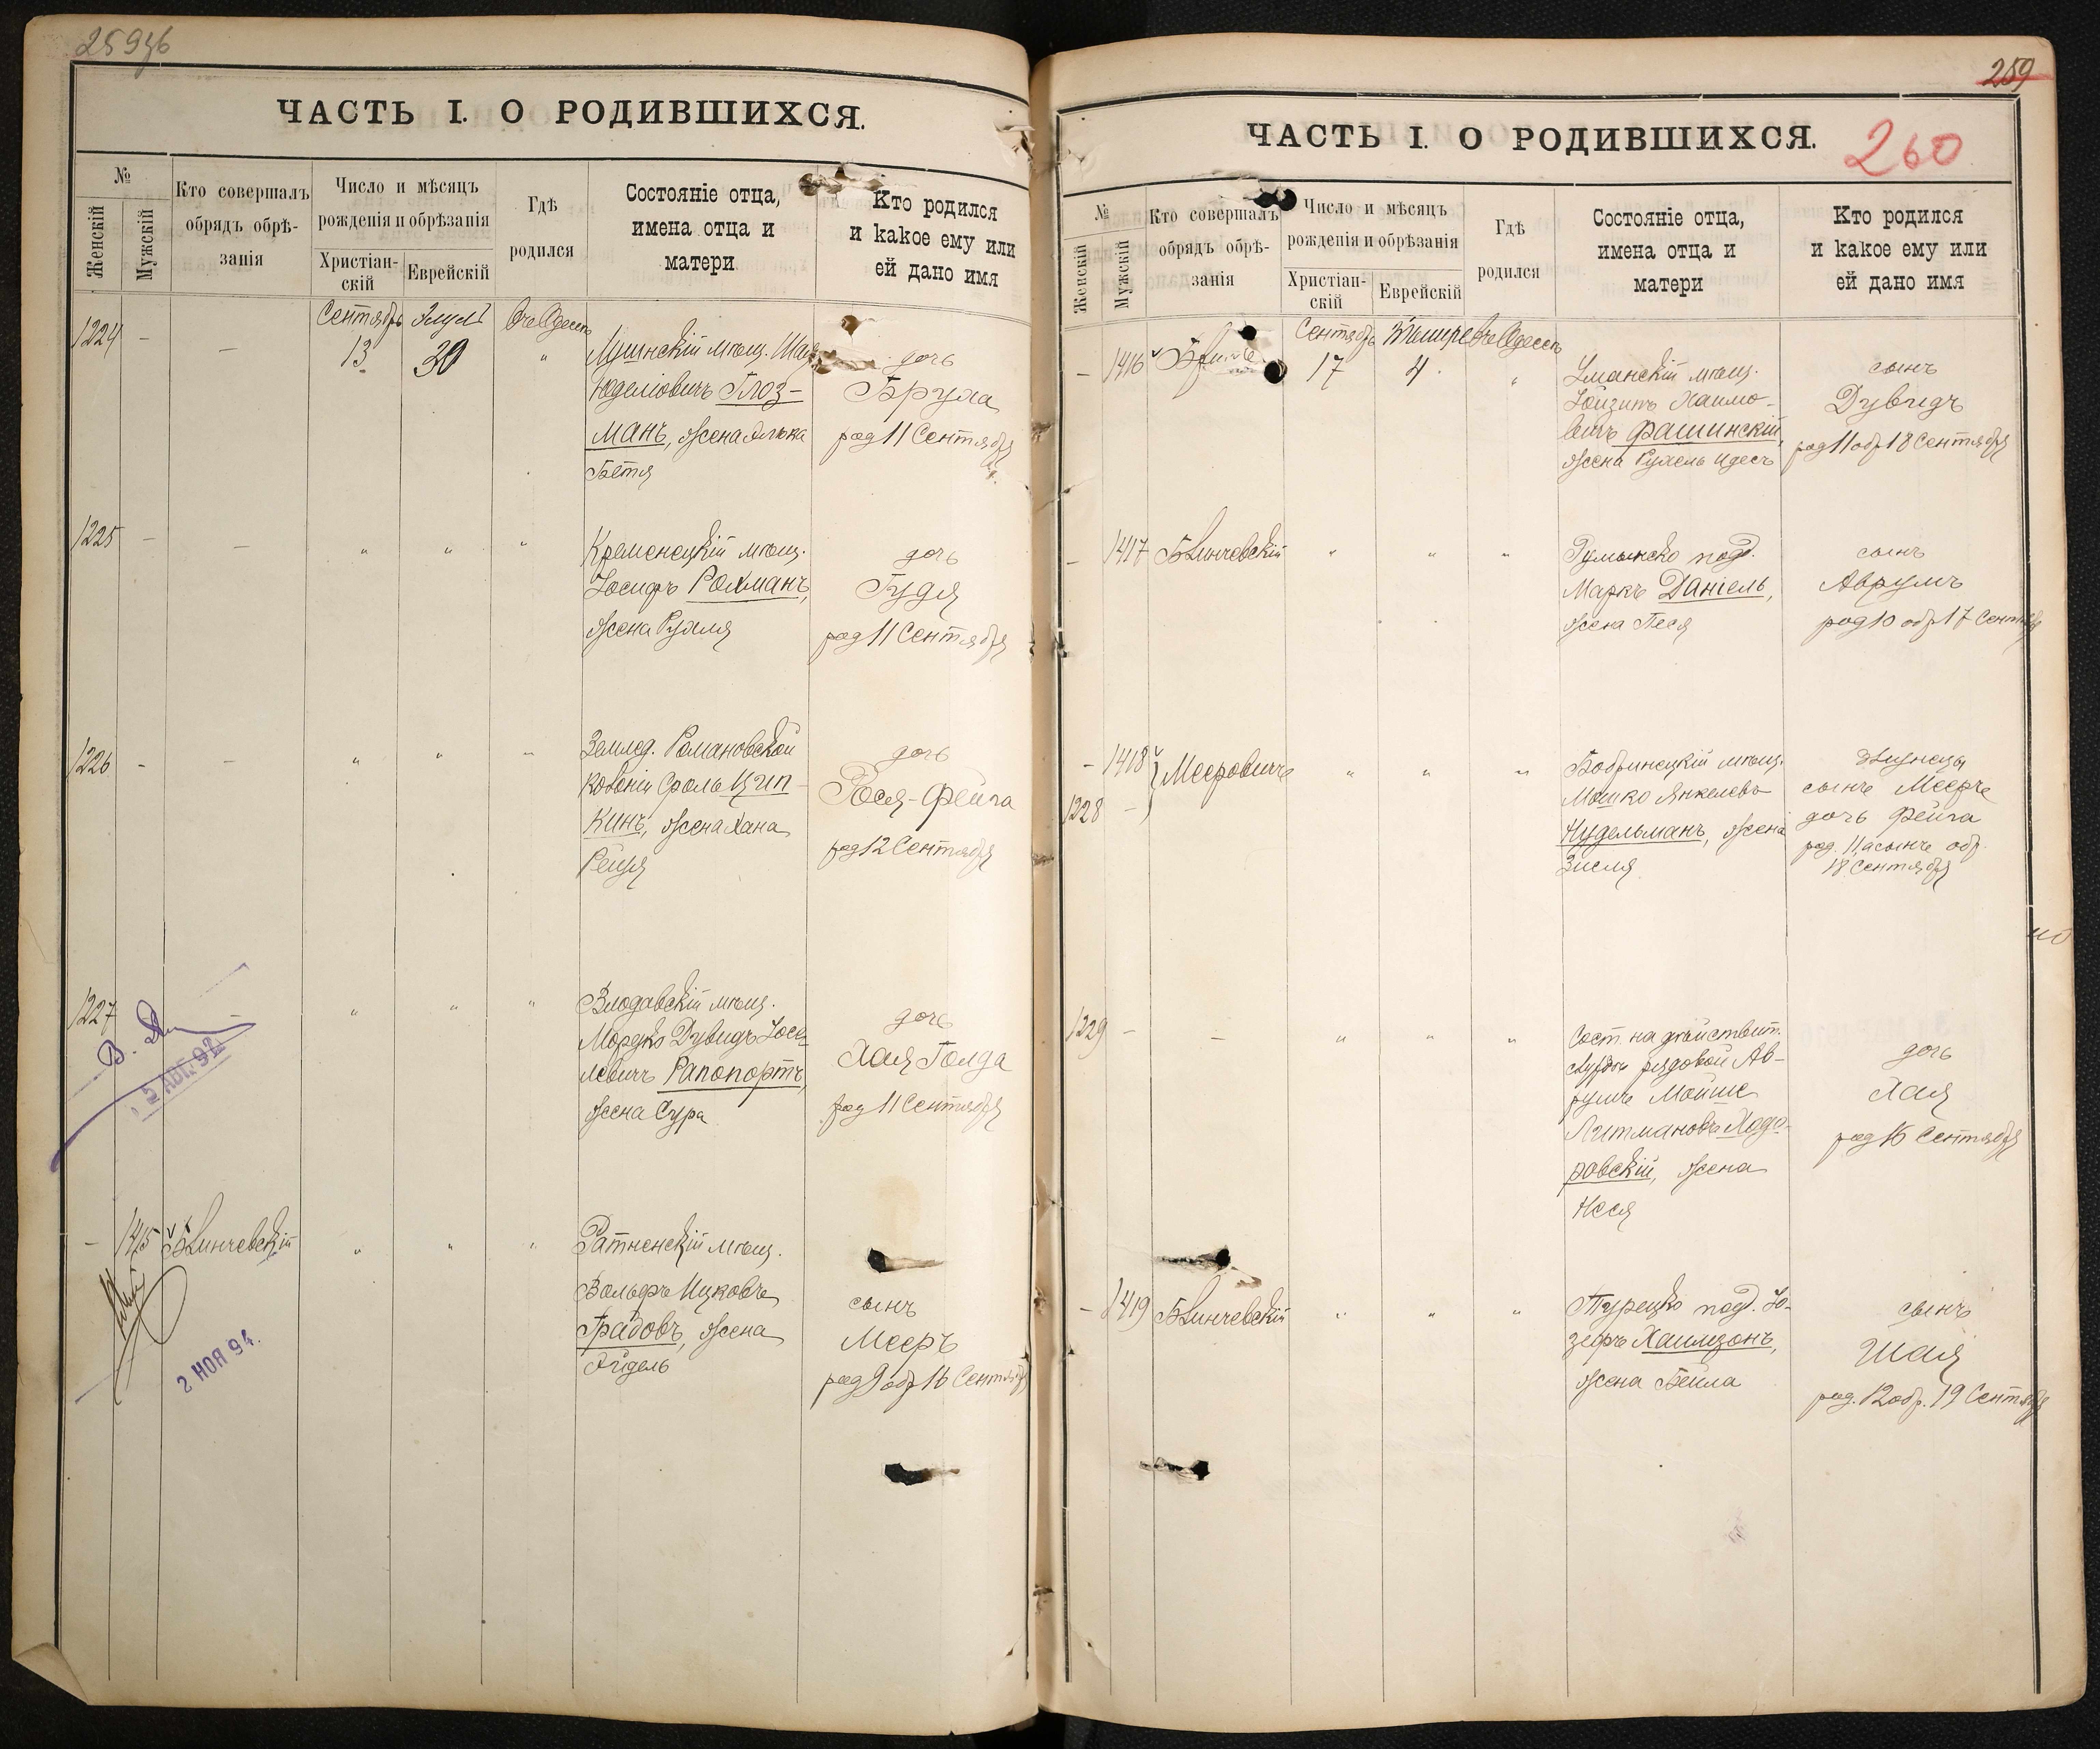 ЧАСТЬ I. О РОДИВШИХСЯ.
№
Женскій
Мужскій
Кто совершалъ
обрядъ обрѣ-
занія
Число и мѣсяцъ
рожденія и обрѣзанія
Христіан-
скій
Еврейскій
Гдѣ
родился
Состояніе отца,
имена отца и
матери
Кто родился
и какое ему или
ей дано имя
1224 — —
Сентябрь 13
Элулъ 30
въ Одессѣ
мѣщ.
Юделіовичъ Глоз-
манъ, жена
Бетя
дочь
Бруха
род 11 Сентября
1225 — — " " "
Кременецкій мѣщ.
Іосифъ Рохманъ,
жена Рухля
дочь
Гудя
род 11 Сентября
1226 — — " " "
Землед. Романовской
колоніи Сроль Цип-
кинъ, жена Хана
Рейзя
дочь
Рося-Фейга
род 12 Сентября
1227 — " " "
Влодавскій мѣщ.
Мордко Дувидъ Іосе-
левичъ Рапопортъ,
жена Сура
дочь
Хая Голда
род 11 Сентября
2 АВГ. 92
— 1415 Блинчевскій " " "
Ратненскій мѣщ.
Вольфъ Ицковъ
Градовъ, жена
Эйдель
сынъ
Мееръ
род 9 обр 16 Сентября
2 НОЯ 94.
259
260
ЧАСТЬ I. О РОДИВШИХСЯ.
№
Женскій
Мужскій
Кто совершалъ
обрядъ обрѣ-
занія
Число и мѣсяцъ
рожденія и обрѣзанія
Христіан-
скій
Еврейскій
Гдѣ
родился
Состояніе отца,
имена отца и
матери
Кто родился
и какое ему или
ей дано имя
— 1416
Сентябрь 17
Тышре 4
въ Одессѣ
Уманскій мѣщ.
Хаимо-
вичъ Фашинскій,
жена Рухель Идесъ
сынъ
Дувидъ
род 11 обр 18 Сентября
— 1417 Блинчевскій " " "
Румынско под.
Маркъ Даніель,
жена Песя
сынъ
Аврумъ
род 10 обр 17 Сентября
— 1418
1228 —
Мееровичъ " " "
Бобринецкій мѣщ.
Мошко Янкелевъ
Нудельманъ, жена
Зисля
Близнецы
сынъ Мееръ
дочь Фейга
род. 11, а сынъ обр.
18 Сентября
1229 — — " " "
Сост. на дѣйствит.
службѣ рядовой Ав-
румъ Мойше
Литмановъ Ходо-
ровскій, жена
Неся
дочь
Хая
род 16 Сентября
— 1419 Блинчевскій " " "
Турецко под. Іо-
зефъ Хаимзонъ,
жена Бейла
сынъ
Шая
род. 12 обр. 19 Сентября